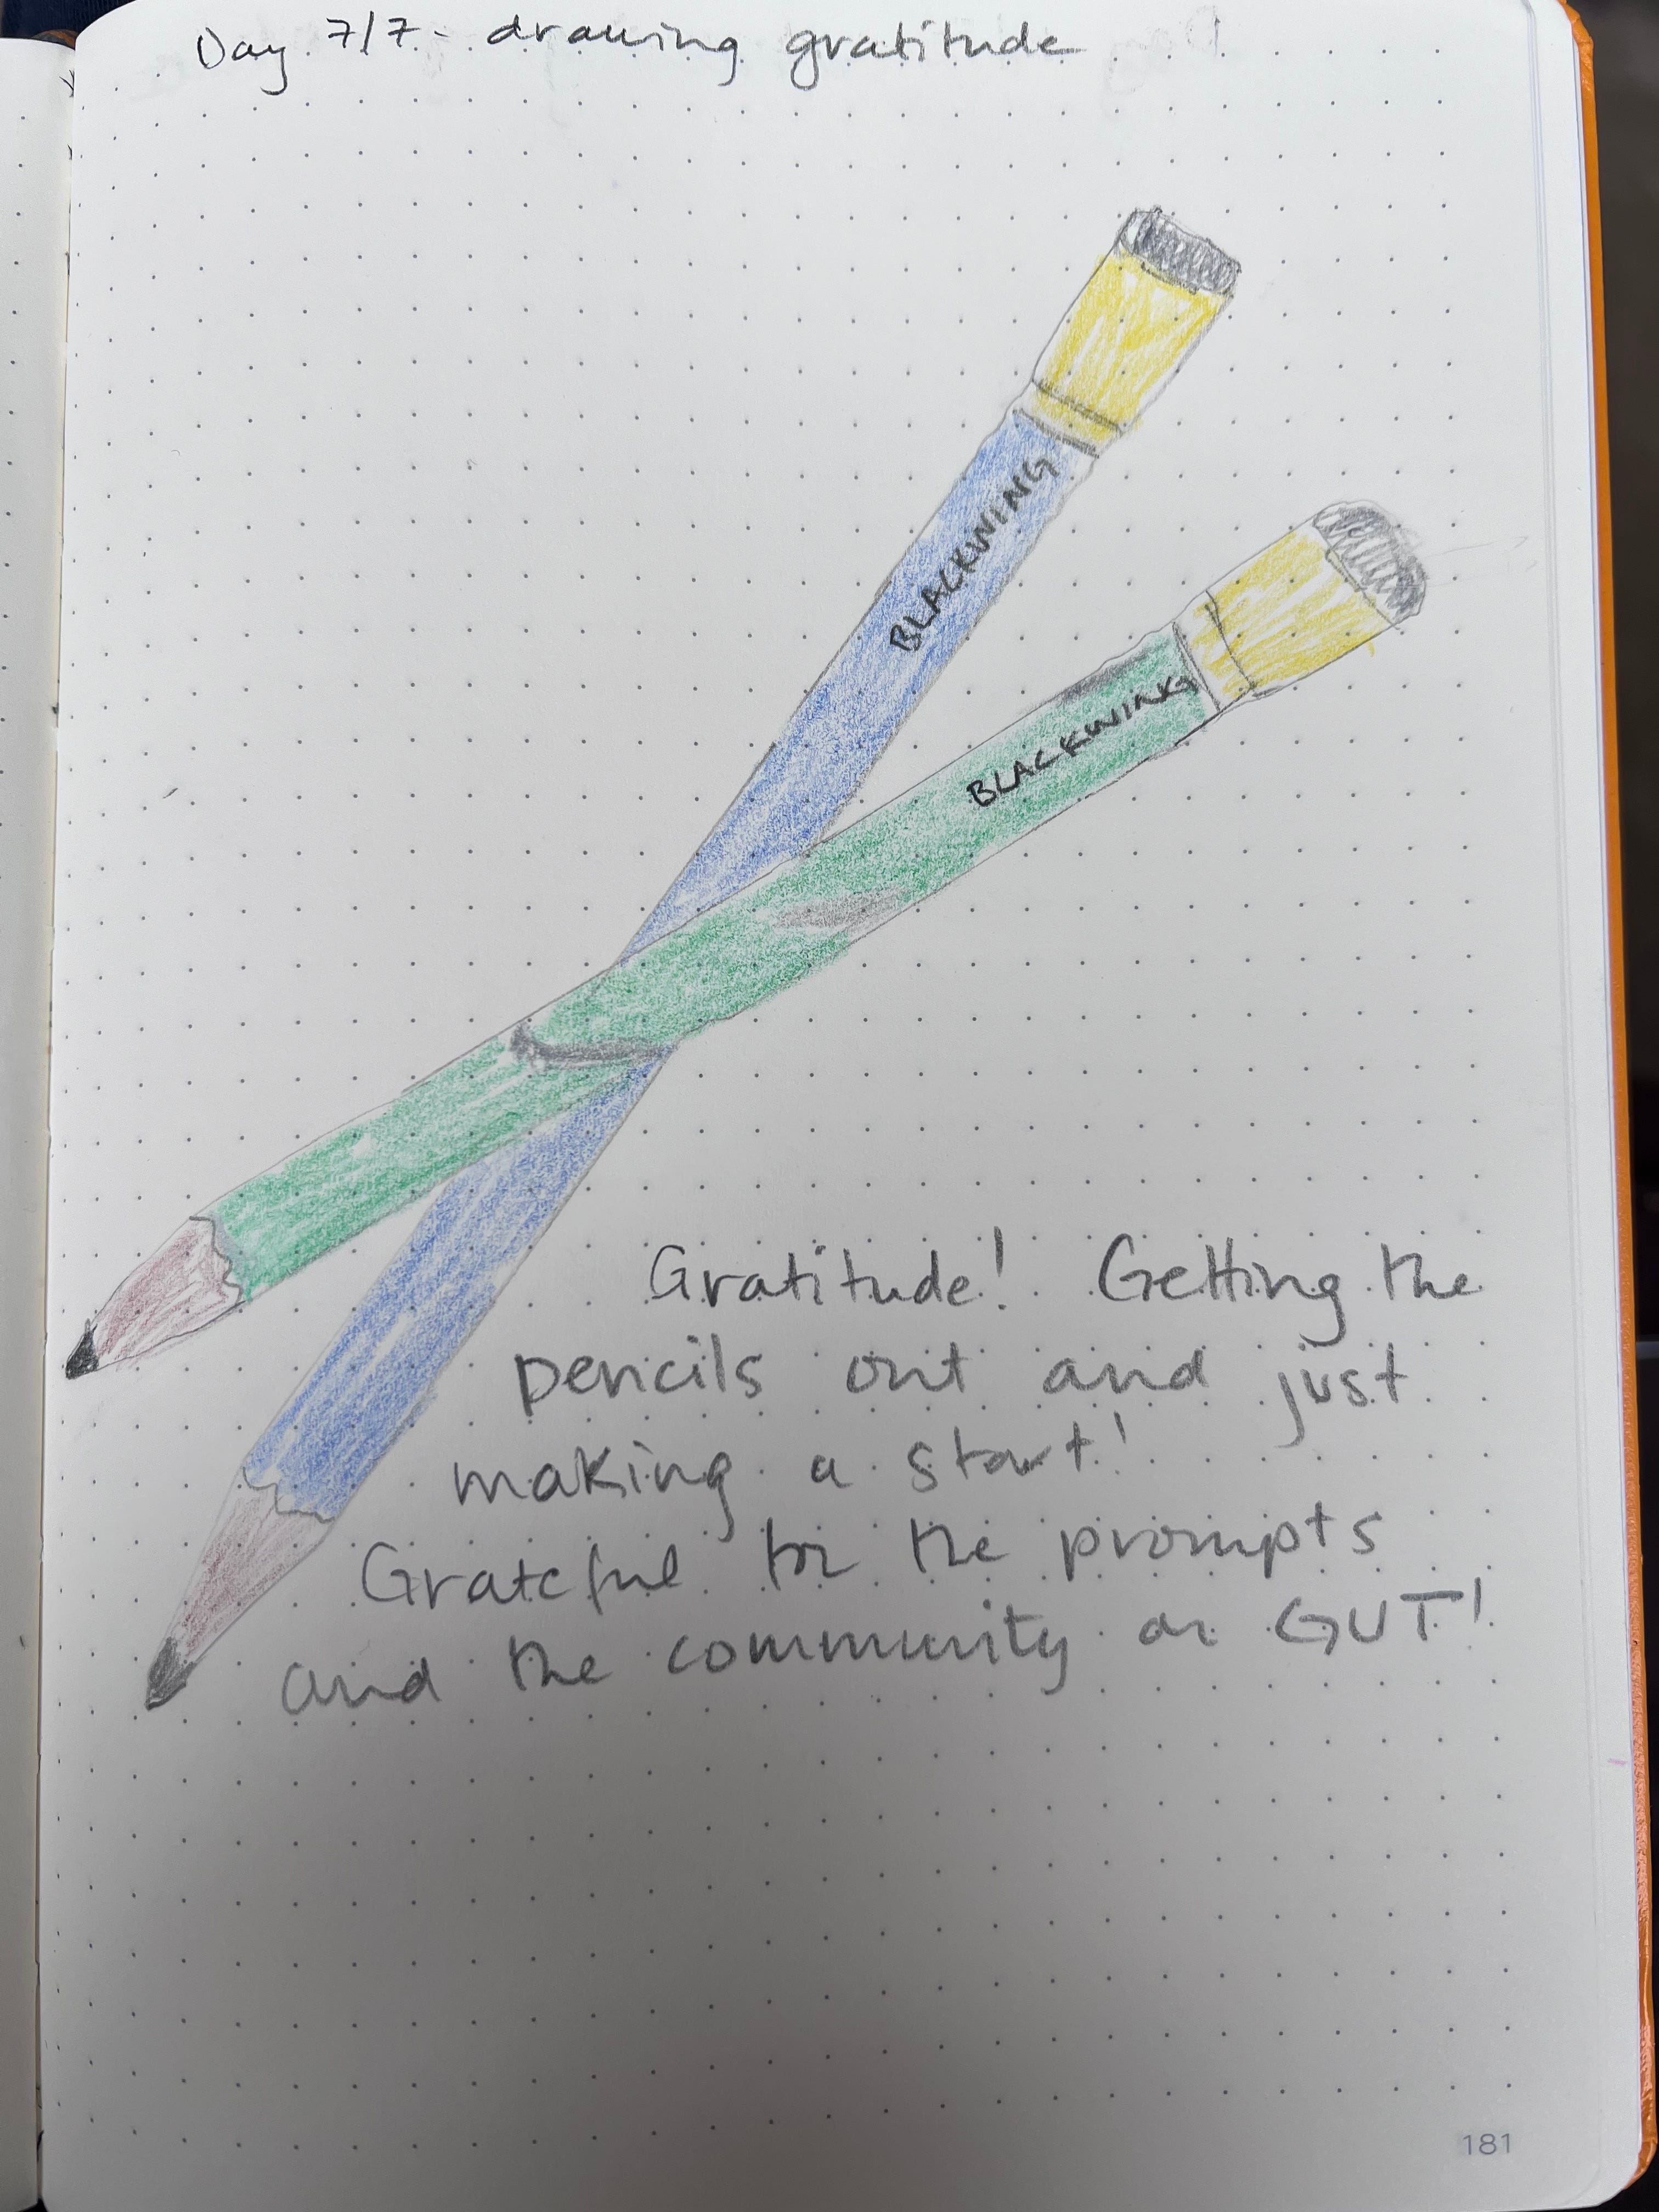 Day 7/7 - drawing gratitude
BLACKWING
BLACKWING
Gratitude! Getting the
pencils out and just
making a start!
Grateful for the prompts
and the community on GUT!
181